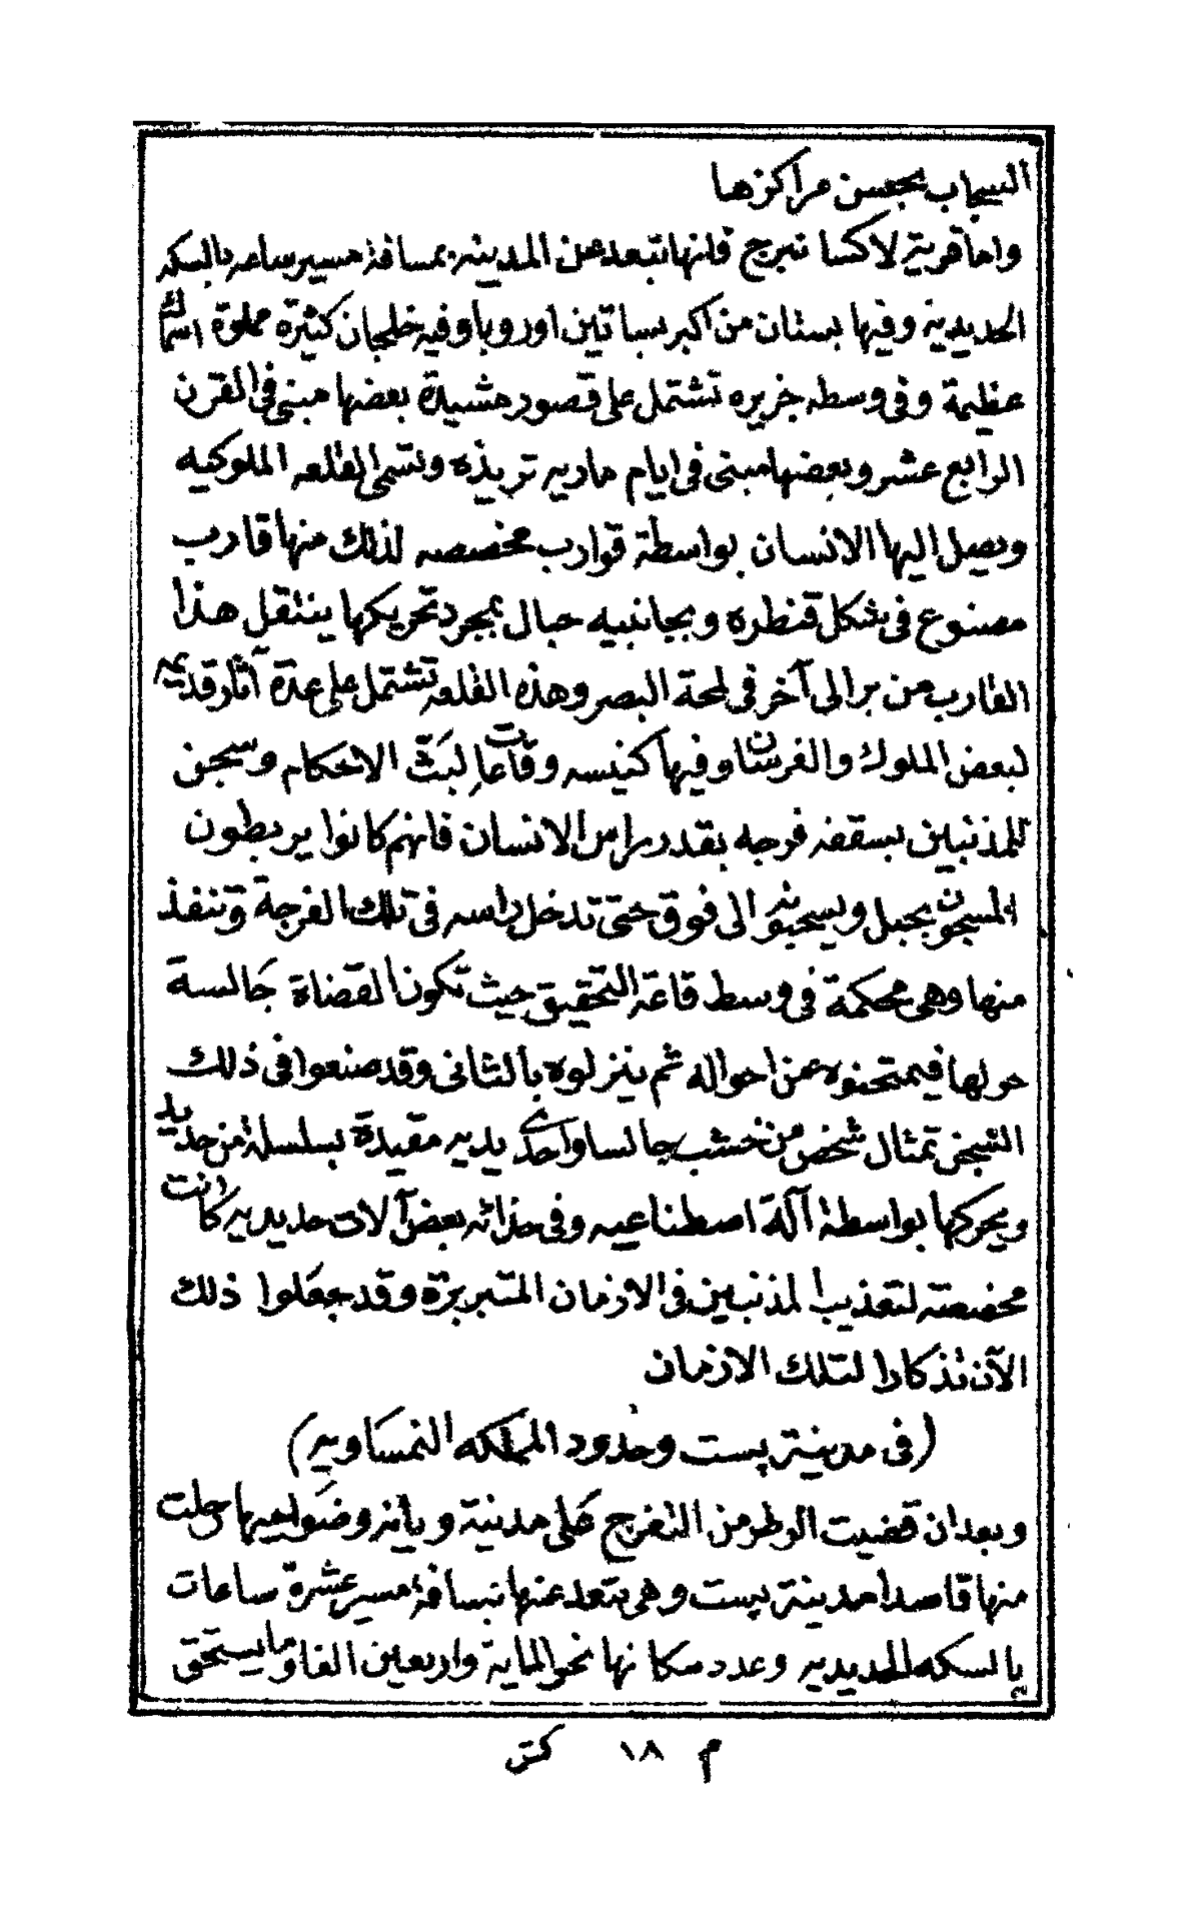 السيجاب بحسن مراكزها
واما قرية لاكسا نبرج فانها تبعد عن المدينه بمسافة مسير ساعه بالسكه
الحديديه وفيها بستان من اكبر بساتين اوروبا وفيه خلجان كثيرة مملوة اسماك
عظيمة وفى وسطه جزيره تشتمل على قصور مشيدة بعضها مبنى فى القرن
الرابع عشر وبعضها مبنى فى ايام ماريه تريذه وتسمى القلعه الملوكيه
ويصل اليها الانسان بواسطة قوارب مخصصه لذلك منها قارب
مصنوع فى شكل قنطره وبجانبيه حبال بمجرد تحريكها ينتقل هذا
القارب من بر الى آخر فى لمحة البصر وهذه القلعه تشتمل على عدة آثار قديمه
لبعض الملوك والفرسان وفيها كنيسه وقاعات لبث الاحكام وسجن
للمذنبين بسقفه فرجه بقدر راس الانسان فانهم كانوا يربطون
المسجون بحبل ويسحبونه الى فوق حتى تدخل راسه فى تلك الفرجة وتنفذ
منها وهى محكمة فى وسط قاعة التحقيق حيث تكون القضاة جالسة
حولها فيمتحنوه عن احواله ثم ينزلوه بالتانى وقد صنعوا فى ذلك
السجن تمثال شخص من خشب جالسا واحدى يديه مقيدة بسلسلة من حديد
ويحركها بواسطة آلة اصطناعيه وفى حذائه بعض آلات حديديه كانت
مخصصته لتعذيب المذنبين فى الازمان المتبربزة وقد جعلوا ذلك
الآن تذكارا لتلك الازمان
(فى مدينة پست وحدود المملكه النمساويه)
وبعد ان قضيت الوطر من التفرج على مدينة ويانه وضواحيها رحلت
منها قاصدا مدينة پست وهى تبعد عنها بمسافة مسير عشرة ساعات
بالسكه الحديديه وعدد سكانها نحو الماية واربعين الفا وما يستحق
م ١٨ كتر